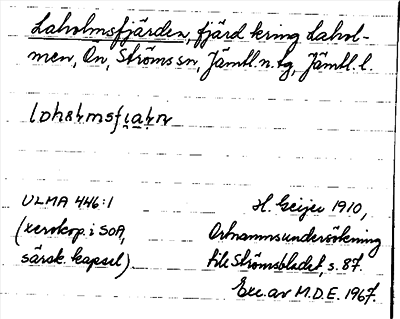 Laholmsfjärden, fjärd kring Lahol-
men, Ön, Ströms sn, Jämtl. n. tg, Jämtl. l.
ULMA 446:1
(xerokop. i SOA,
särsk. kapsel)
H. Geijer 1910,
Ortnamnsundersökning
till Strömsbladet, s. 87.
Exc. av M.D.E. 1967.